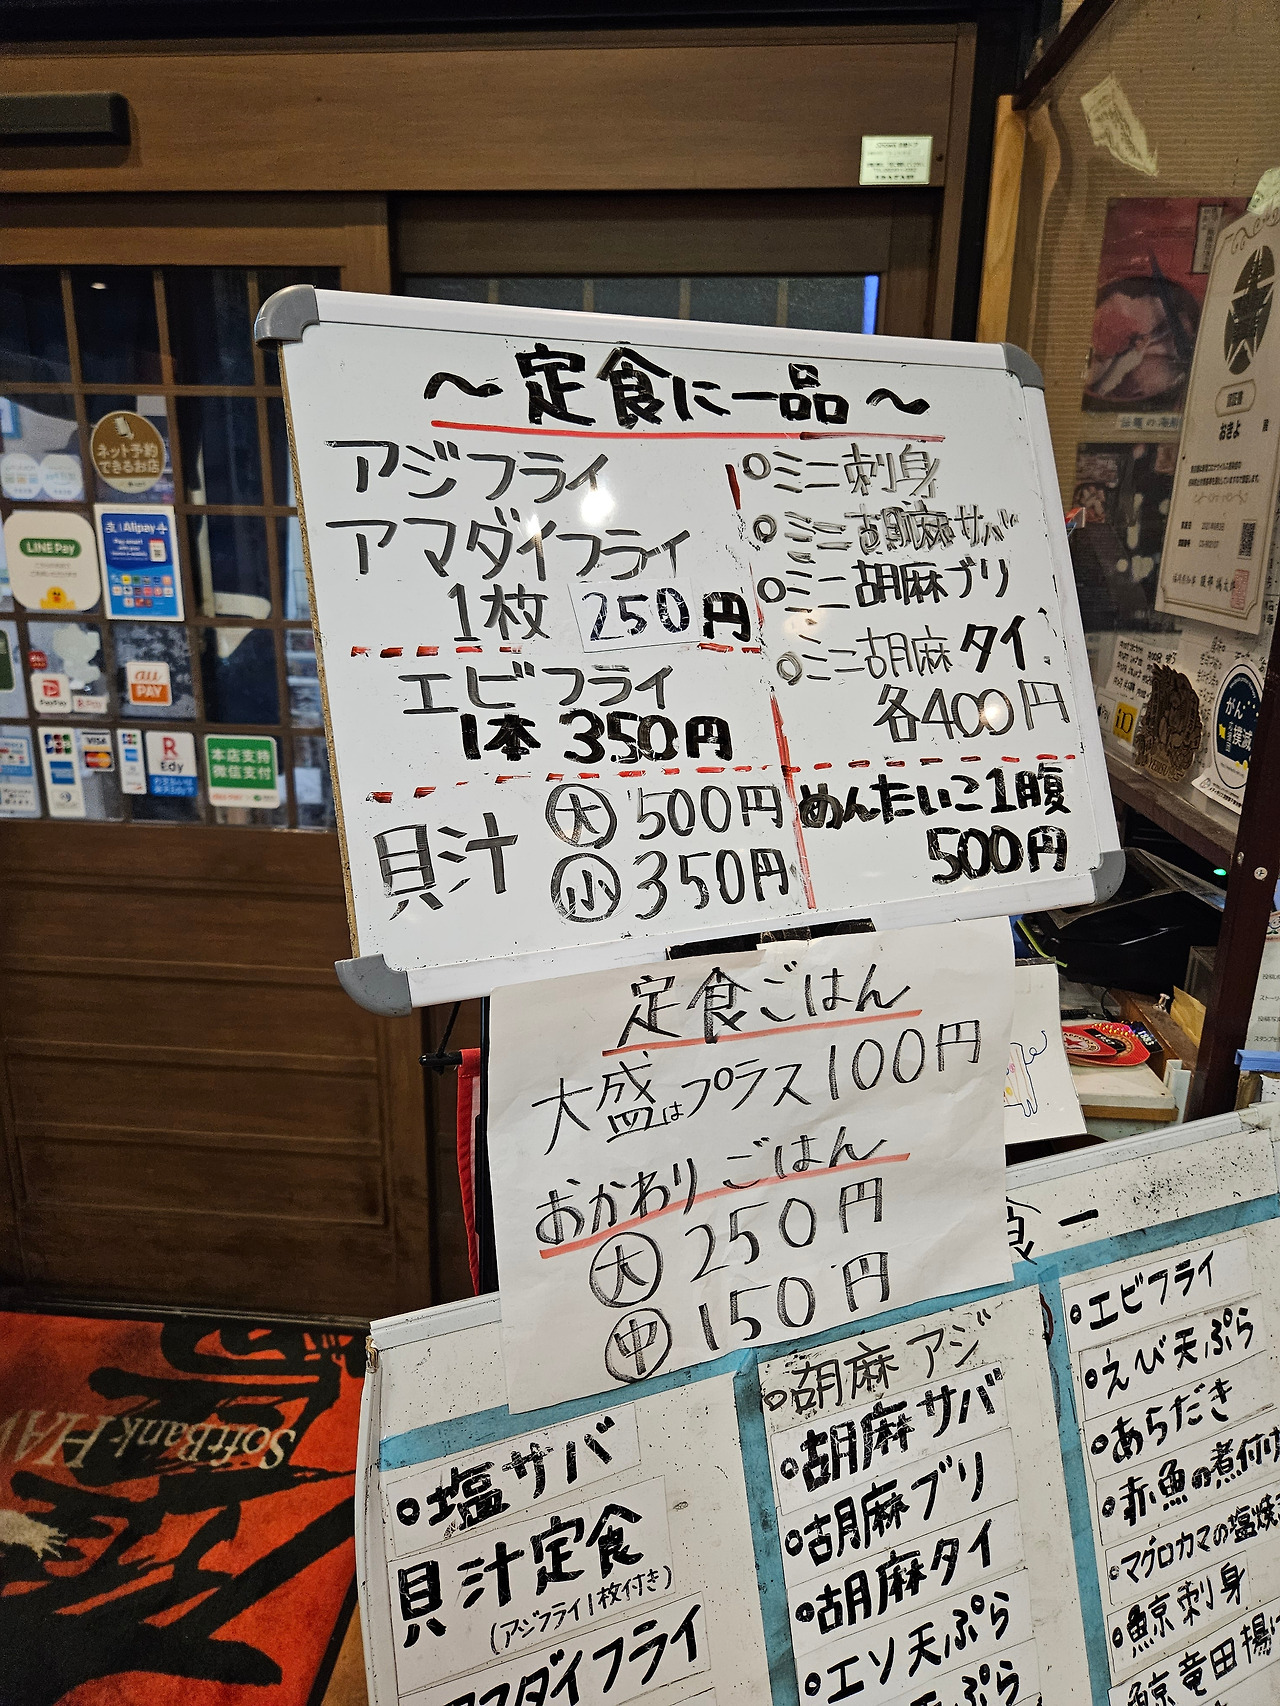 ~定食に一品~
アジフライ
アマダイフライ
1枚 250円
エビフライ
1本 350円
貝汁 大 500円
小 350円
ミニ刺身
ミニ胡麻サバ
ミニ胡麻ブリ
ミニ胡麻タイ
各400円
めんたいこ1腹
500円
定食ごはん
大盛はプラス100円
おかわりごはん
大 250円
中 150円
食一
塩サバ
貝汁定食
(アジフライ1枚付き)
マダイフライ
胡麻アジ
胡麻サバ
胡麻ブリ
胡麻タイ
エソ天ぷら
天ぷら
エビフライ
えび天ぷら
あらだき
赤魚の煮付け
マグロカマの塩焼き
鯨刺身
鯨竜田揚げ
ネット予約
できるお店
LINE Pay
Alipay
PayPay
au
PAY
JCB
VISA
R
Edy
本店支持
微信支付
SoftBank HAW
認証書
おきよ
がん
撲滅
iD